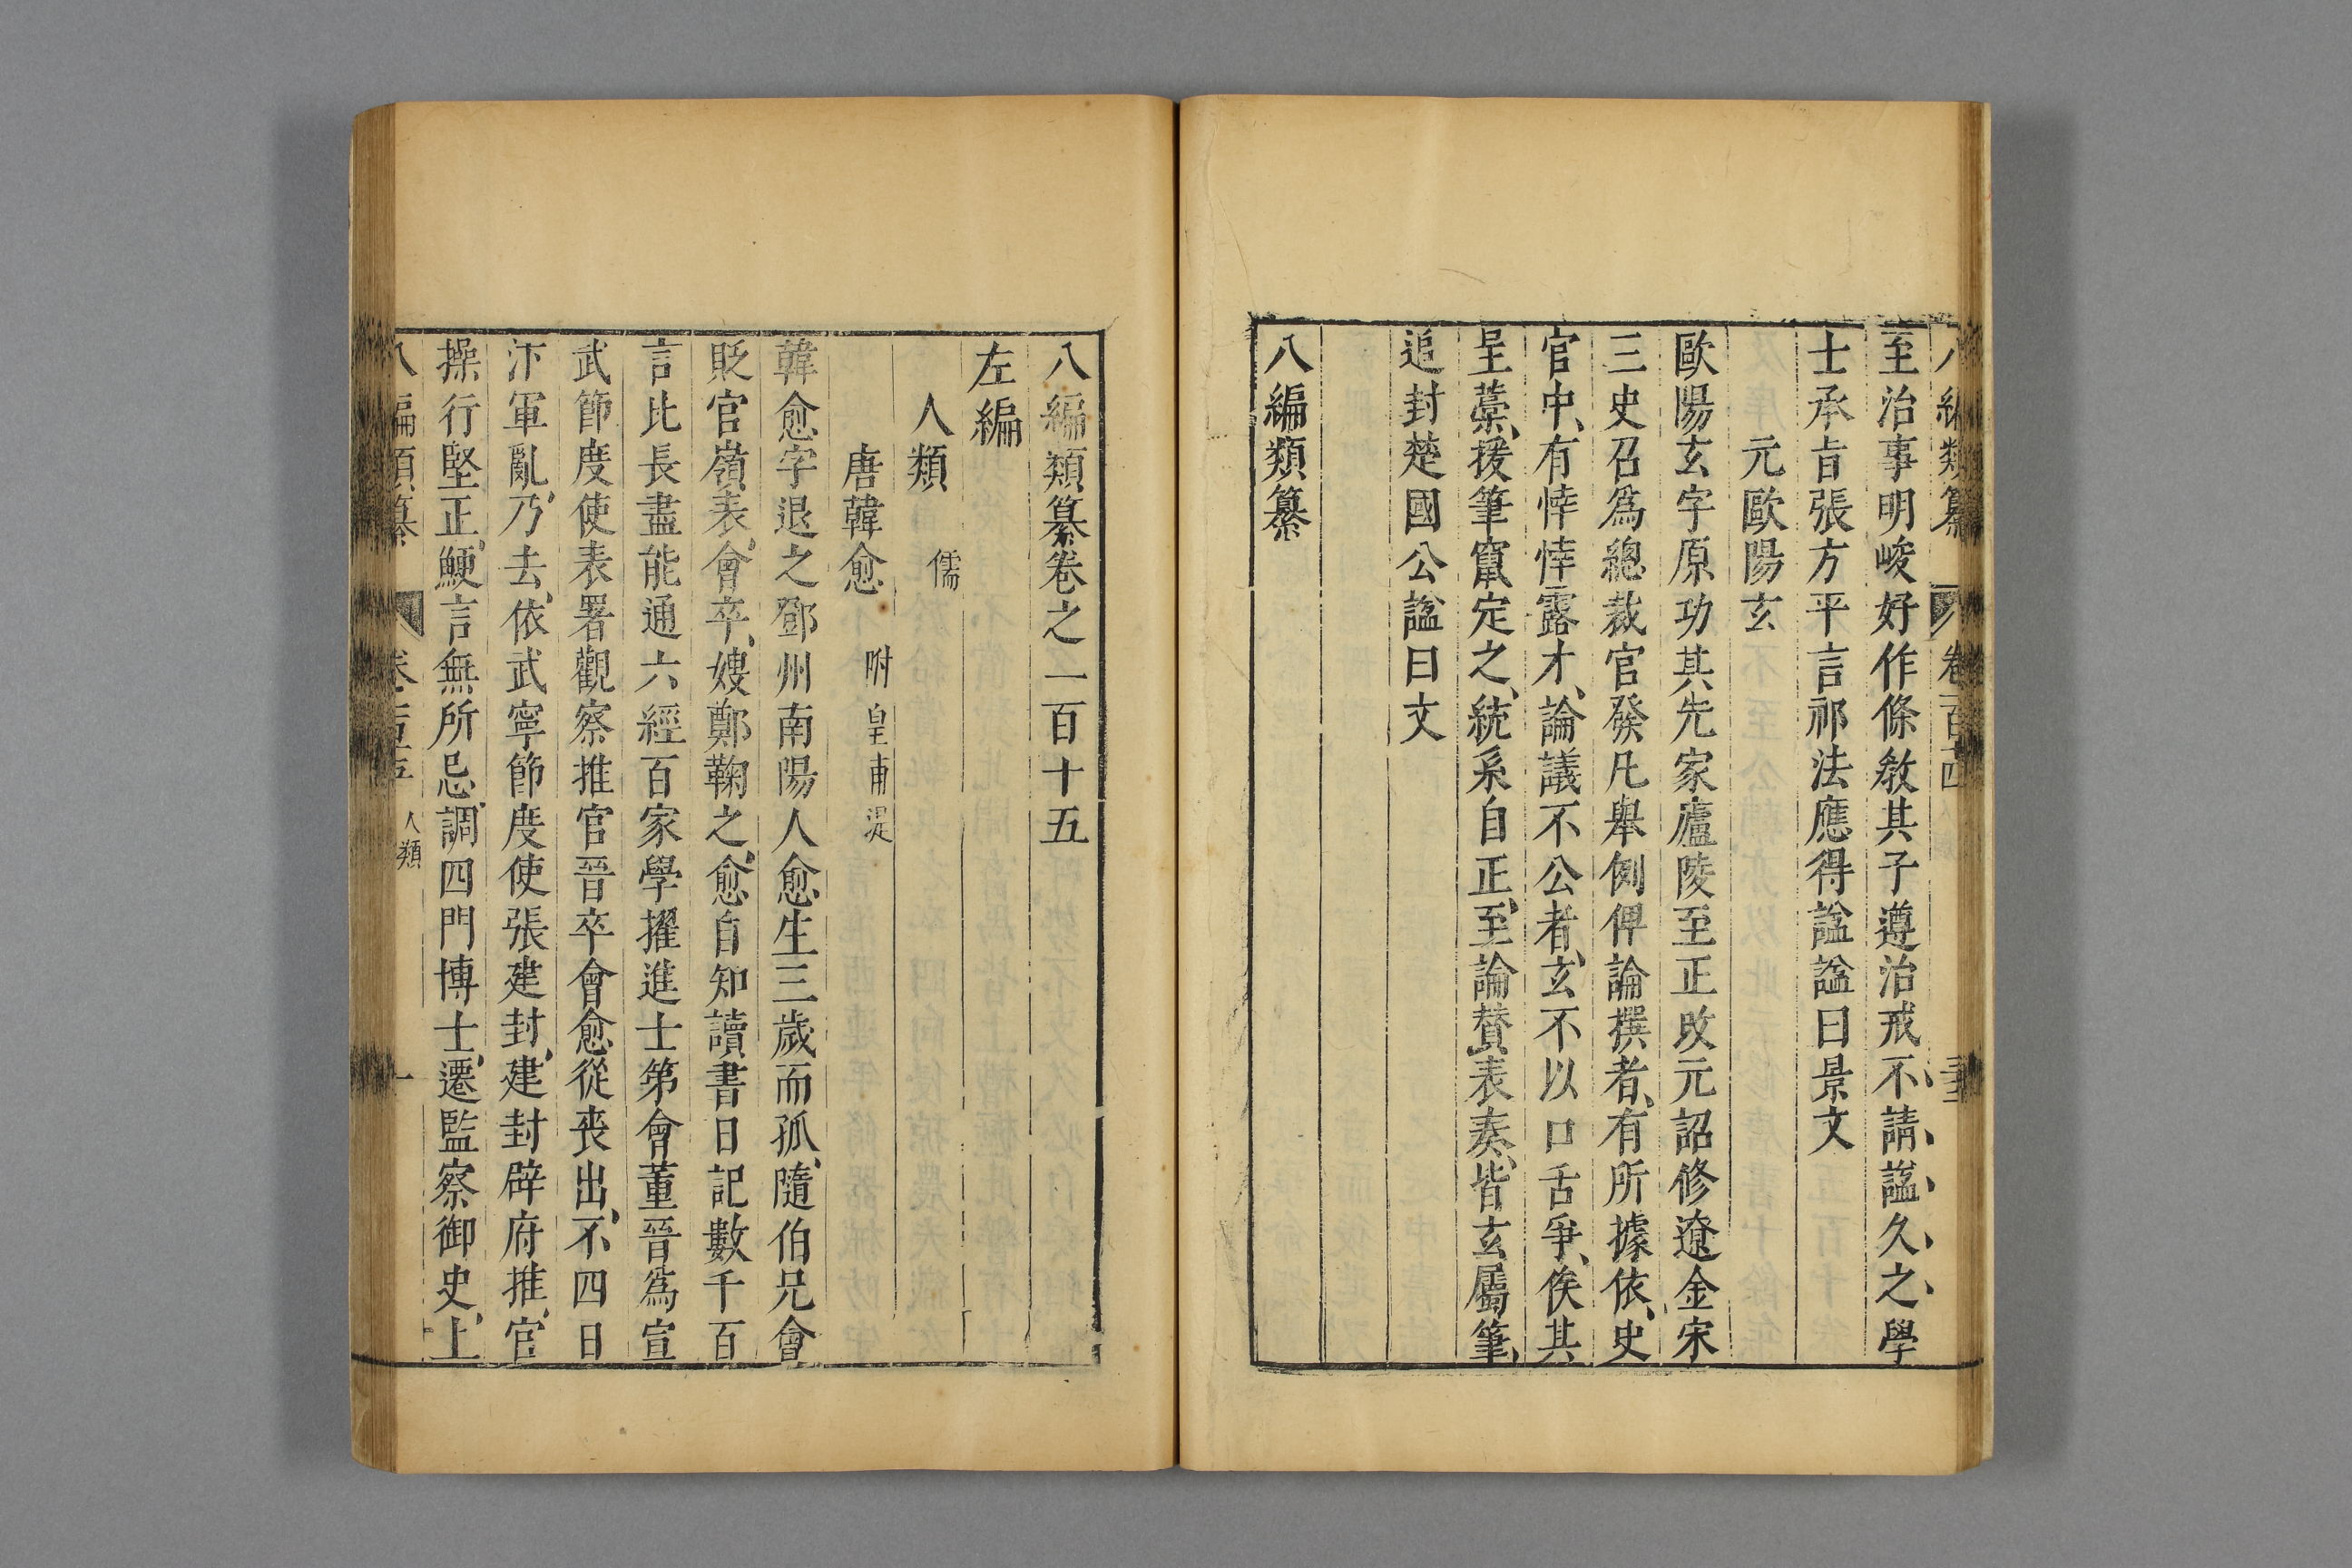 八編類纂 卷一百十四
至治事明峻好作條敎其子遵治戒不請謚久之學
士承旨張方平言祁法應得謚謚曰景文
元歐陽玄
歐陽玄字原功其先家廬陵至正改元詔修遼金宋
三史召爲總裁官發凡舉例俾論撰者有所據依史
官中有悻悻露才論議不公者玄不以口舌爭俟其
呈藁援筆竄定之統系自正至論贊表奏皆玄屬筆
追封楚國公謚曰文
八編類纂
八編類纂卷之一百十五
左編
人類 儒
唐韓愈 附皇甫湜
韓愈字退之鄧州南陽人愈生三歲而孤隨伯兄會
貶官嶺表會卒嫂鄭鞠之愈自知讀書日記數千百
言比長盡能通六經百家學擢進士第會董晉爲宣
武節度使表署觀察推官晉卒會愈從喪出不四日
汴軍亂乃去依武寧節度使張建封建封辟府推官
操行堅正鯁言無所忌調四門博士遷監察御史上
八編類纂 卷一百十五 人類 一